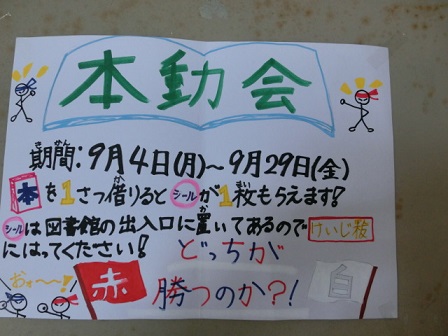 本動会
期間:9月4日(月)~9月29日(金)
本を1さつ借りるとシールが1枚もらえます!
シールは図書館の出入口に置いてあるのでけいじ板
にはってください!
どっちが
おぉ~~!
赤
勝つのか?!
白